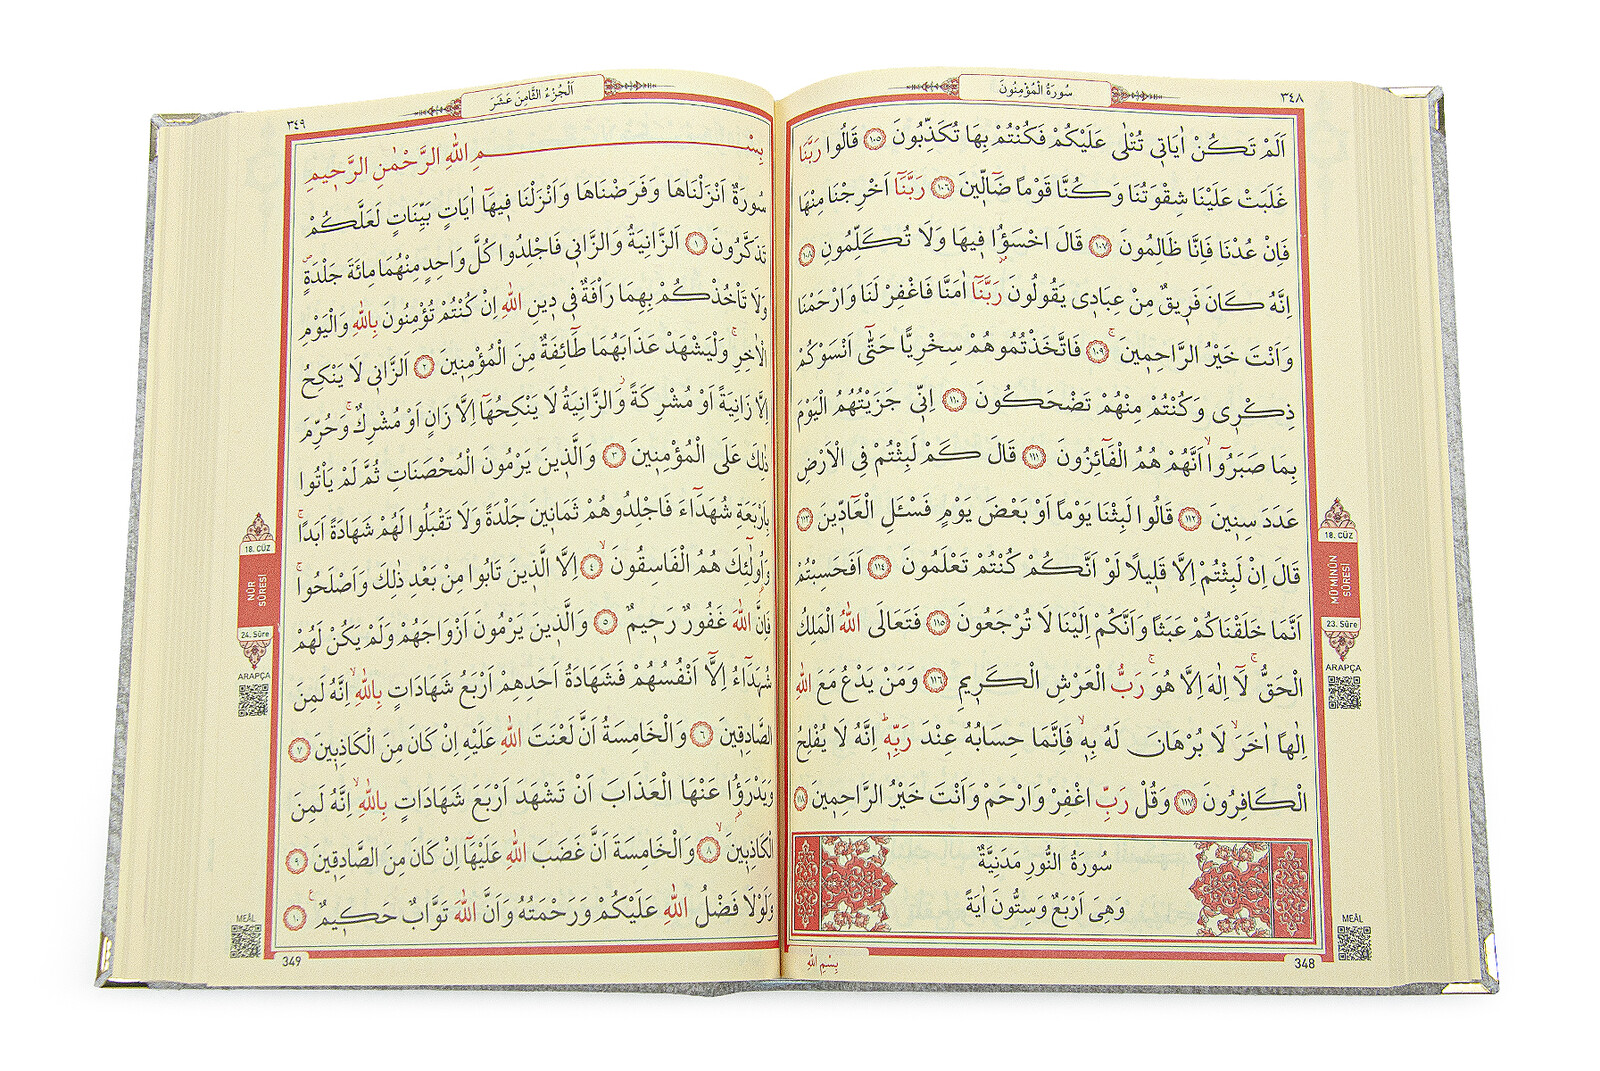 سُورَةُ الْمُؤْمِنُونَ
٣٤٨
اَلَمْ تَكُنْ اٰيَات۪ي تُتْلٰى عَلَيْكُمْ فَكُنْتُمْ بِهَا تُكَذِّبُونَ ﴿١٠٥﴾ قَالُوا رَبَّنَا
غَلَبَتْ عَلَيْنَا شِقْوَتُنَا وَكُنَّا قَوْمًا ضَٓالّ۪ينَ ﴿١٠٦﴾ رَبَّنَٓا اَخْرِجْنَا مِنْهَا
فَاِنْ عُدْنَا فَاِنَّا ظَالِمُونَ ﴿١٠٧﴾ قَالَ اخْسَؤُ۫ا ف۪يهَا وَلَا تُكَلِّمُونِ ﴿١٠٨﴾
اِنَّهُ كَانَ فَر۪يقٌ مِنْ عِبَاد۪ي يَقُولُونَ رَبَّنَٓا اٰمَنَّا فَاغْفِرْ لَنَا وَارْحَمْنَا
وَاَنْتَ خَيْرُ الرَّاحِم۪ينَۚ ﴿١٠٩﴾ فَاتَّخَذْتُمُوهُمْ سِخْرِيًّا حَتّٰٓى اَنْسَوْكُمْ
ذِكْر۪ي وَكُنْتُمْ مِنْهُمْ تَضْحَكُونَ ﴿١١٠﴾ اِنّ۪ي جَزَيْتُهُمُ الْيَوْمَ
بِمَا صَبَرُٓواۙ اَنَّهُمْ هُمُ الْفَٓائِزُونَ ﴿١١١﴾ قَالَ كَمْ لَبِثْتُمْ فِي الْاَرْضِ
عَدَدَ سِن۪ينَ ﴿١١٢﴾ قَالُوا لَبِثْنَا يَوْمًا اَوْ بَعْضَ يَوْمٍ فَسْـَٔلِ الْعَٓادّ۪ينَ ﴿١١٣﴾
قَالَ اِنْ لَبِثْتُمْ اِلَّا قَل۪يلًا لَوْ اَنَّكُمْ كُنْتُمْ تَعْلَمُونَ ﴿١١٤﴾ اَفَحَسِبْتُمْ
اَنَّمَا خَلَقْنَاكُمْ عَبَثًا وَاَنَّكُمْ اِلَيْنَا لَا تُرْجَعُونَ ﴿١١٥﴾ فَتَعَالَى اللّٰهُ الْمَلِكُ
الْحَقُّۚ لَٓا اِلٰهَ اِلَّا هُوَۚ رَبُّ الْعَرْشِ الْكَر۪يمِ ﴿١١٦﴾ وَمَنْ يَدْعُ مَعَ اللّٰهِ
اِلٰهًا اٰخَرَۙ لَا بُرْهَانَ لَهُ بِه۪ۙ فَاِنَّمَا حِسَابُهُ عِنْدَ رَبِّه۪ۜ اِنَّهُ لَا يُفْلِحُ
الْكَافِرُونَ ﴿١١٧﴾ وَقُلْ رَبِّ اغْفِرْ وَارْحَمْ وَاَنْتَ خَيْرُ الرَّاحِم۪ينَ ﴿١١٨﴾
سُورَةُ النُّورِ مَدَنِيَّةٌ
وَهِيَ اَرْبَعٌ وَسِتُّونَ اٰيَةً
بِسْمِ اللّٰهِ
348
18. CÜZ
MÜ'MİNÛN SÛRESİ
23. Sûre
ARAPÇA
MEÂL
اَلْجُزْءُ الثَّامِنَ عَشَرَ
٣٤٩
بِسْــــــمِ اللّٰهِ الرَّحْمٰنِ الرَّح۪يمِ
سُورَةٌ اَنْزَلْنَاهَا وَفَرَضْنَاهَا وَاَنْزَلْنَا ف۪يهَٓا اٰيَاتٍ بَيِّنَاتٍ لَعَلَّكُمْ
تَذَكَّرُونَ ﴿١﴾ اَلزَّانِيَةُ وَالزَّان۪ي فَاجْلِدُوا كُلَّ وَاحِدٍ مِنْهُمَا مِائَةَ جَلْدَةٍۖ
وَلَا تَأْخُذْكُمْ بِهِمَا رَأْفَةٌ ف۪ي د۪ينِ اللّٰهِ اِنْ كُنْتُمْ تُؤْمِنُونَ بِاللّٰهِ وَالْيَوْمِ
الْاٰخِرِۚ وَلْيَشْهَدْ عَذَابَهُمَا طَٓائِفَةٌ مِنَ الْمُؤْمِن۪ينَ ﴿٢﴾ اَلزَّان۪ي لَا يَنْكِحُ
اِلَّا زَانِيَةً اَوْ مُشْرِكَةًۘ وَالزَّانِيَةُ لَا يَنْكِحُهَٓا اِلَّا زَانٍ اَوْ مُشْرِكٌۚ وَحُرِّمَ
ذٰلِكَ عَلَى الْمُؤْمِن۪ينَ ﴿٣﴾ وَالَّذ۪ينَ يَرْمُونَ الْمُحْصَنَاتِ ثُمَّ لَمْ يَأْتُوا
بِاَرْبَعَةِ شُهَدَٓاءَ فَاجْلِدُوهُمْ ثَمَان۪ينَ جَلْدَةً وَلَا تَقْبَلُوا لَهُمْ شَهَادَةً اَبَدًاۚ
وَاُو۬لٰٓئِكَ هُمُ الْفَاسِقُونَۙ ﴿٤﴾ اِلَّا الَّذ۪ينَ تَابُوا مِنْ بَعْدِ ذٰلِكَ وَاَصْلَحُواۚ
فَاِنَّ اللّٰهَ غَفُورٌ رَح۪يمٌ ﴿٥﴾ وَالَّذ۪ينَ يَرْمُونَ اَزْوَاجَهُمْ وَلَمْ يَكُنْ لَهُمْ
شُهَدَٓاءُ اِلَّٓا اَنْفُسُهُمْ فَشَهَادَةُ اَحَدِهِمْ اَرْبَعُ شَهَادَاتٍ بِاللّٰهِۙ اِنَّهُ لَمِنَ
الصَّادِق۪ينَ ﴿٦﴾ وَالْخَامِسَةُ اَنَّ لَعْنَتَ اللّٰهِ عَلَيْهِ اِنْ كَانَ مِنَ الْكَاذِب۪ينَ ﴿٧﴾
وَيَدْرَؤُ۬ا عَنْهَا الْعَذَابَ اَنْ تَشْهَدَ اَرْبَعَ شَهَادَاتٍ بِاللّٰهِۙ اِنَّهُ لَمِنَ
الْكَاذِب۪ينَۙ ﴿٨﴾ وَالْخَامِسَةَ اَنَّ غَضَبَ اللّٰهِ عَلَيْهَٓا اِنْ كَانَ مِنَ الصَّادِق۪ينَ ﴿٩﴾
وَلَوْلَا فَضْلُ اللّٰهِ عَلَيْكُمْ وَرَحْمَتُهُ وَاَنَّ اللّٰهَ تَوَّابٌ حَك۪يمٌ۟ ﴿١٠﴾
349
18. CÜZ
NÛR SÛRESİ
24. Sûre
ARAPÇA
MEÂL